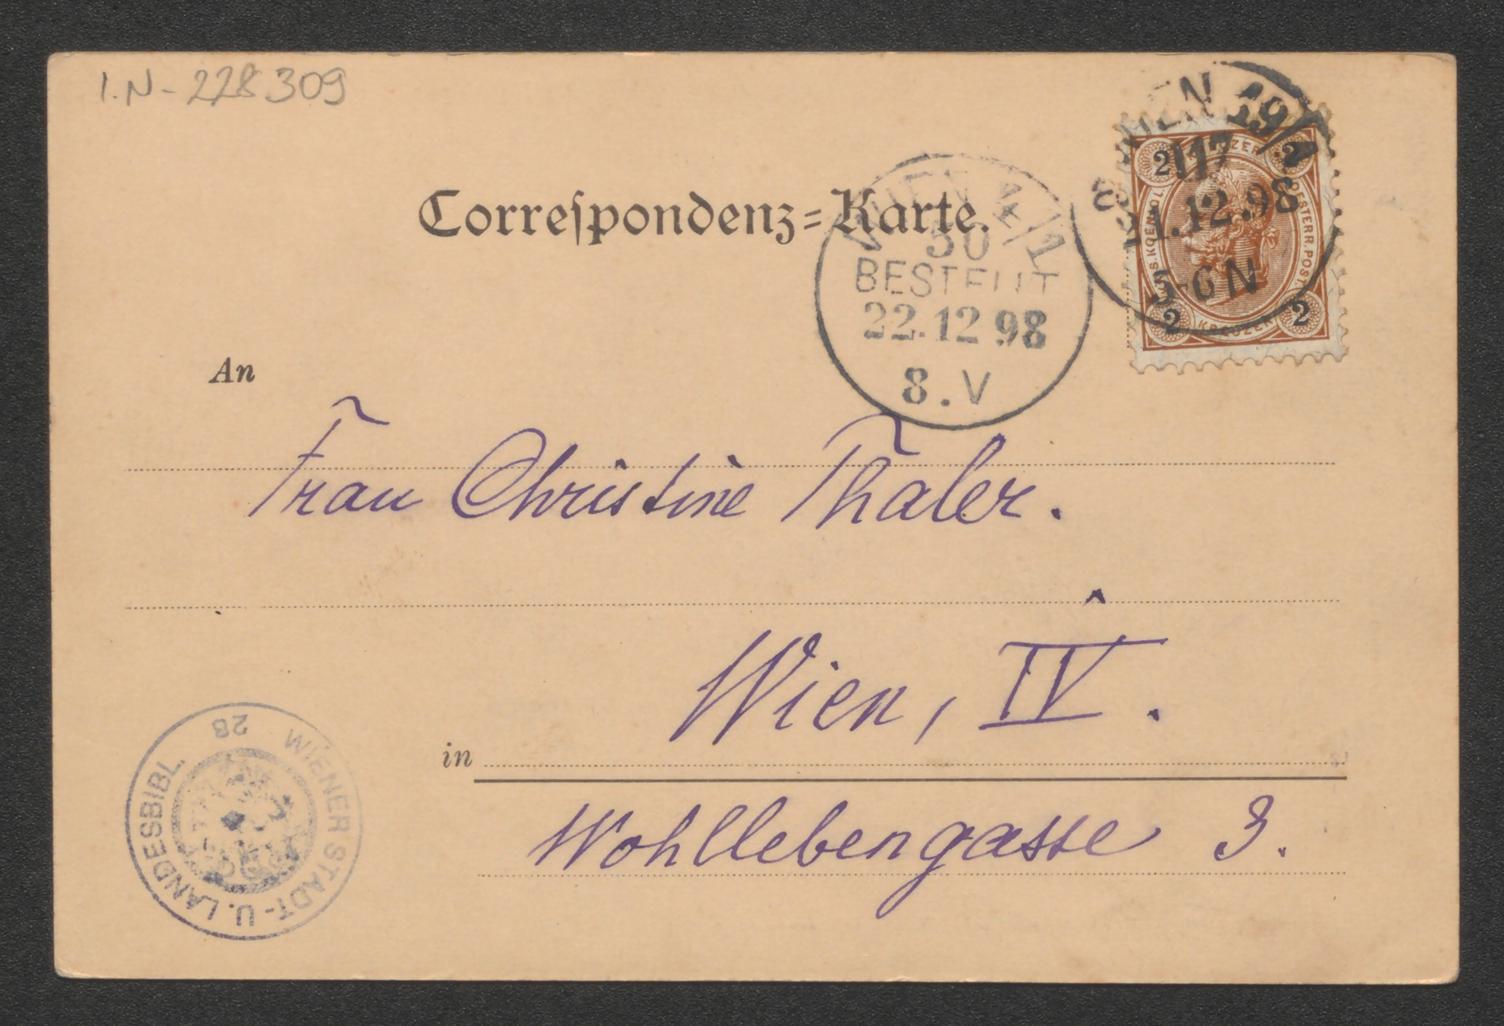 I.N-228309
WIEN 19/1
117
21.12.98
5-6N
2 KREUZER 2
2 KREUZER 2
WIEN 4/1
50
BESTELLT
22.12 98
8.V
Correſpondenz=Karte.
An
Frau Christine Thaler.
Wien, IV.
in
Wohllebengasse 3.
WIENER STADT- U. LANDESBIBL.
28